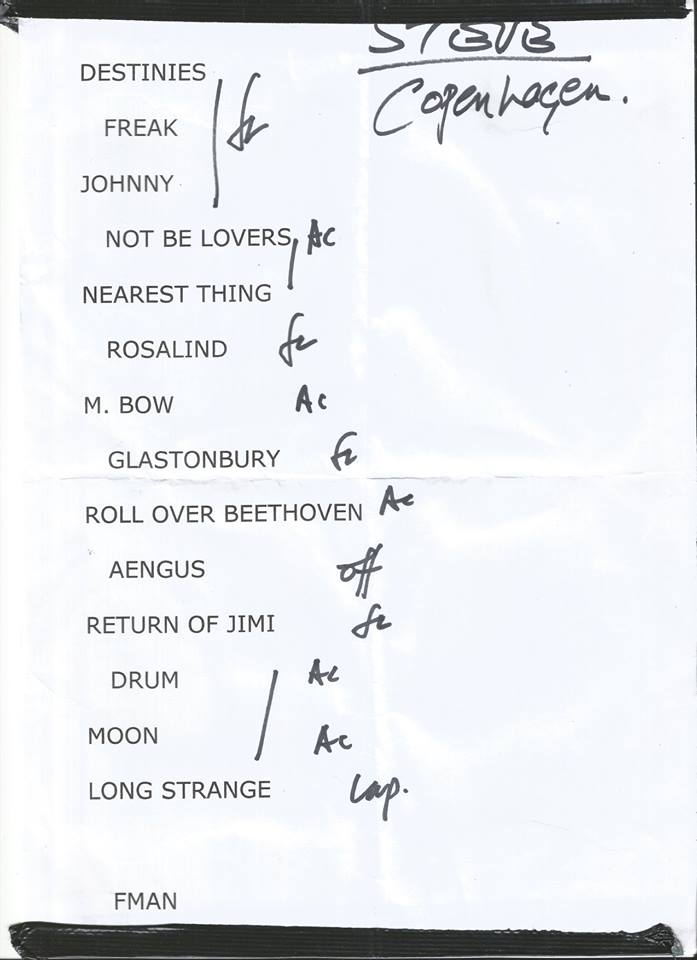 STEVE
Copenhagen.
DESTINIES
FREAK
JOHNNY
NOT BE LOVERS Ac
NEAREST THING
ROSALIND
M. BOW Ac
GLASTONBURY
ROLL OVER BEETHOVEN Ac
AENGUS off
RETURN OF JIMI
DRUM Ac
MOON Ac
LONG STRANGE Lap.
FMAN